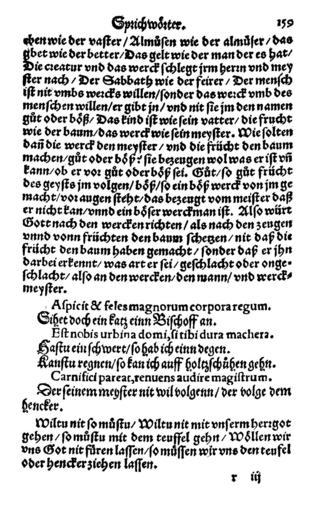 Sprichwörter. 159
chen wie der vaster/ Almůsen wie der almůser/ das
gbet wie der better/ Das gelt wie der man der es hat/
Die creatur vnd das werck schlegt jrm herrn vnd mey
ster nach/ Der Sabbath wie der feirer/ Der mensch
ist nit vmbs wercks willen/ sonder das werck vmb des
menschen willen/ er gibt jn/ vnd nit sie jm den namen
gůt oder böß/ Das kind ist wie sein vatter/ die frucht
wie der baum/ das werck wie sein meyster. Wie solten
dañ die werck den meyster/ vnd die frücht den baum
machen/ gůt oder böß? sie bezeugen wol was er ist vñ
kann/ ob er vor gůt oder böß sei. Gůt/ so gůt frücht
des geysts jm volgen/ böß/ so ein böß werck von jm ge
macht/ vor augen steht/ das bezeugt vom meister daß
er nicht kan/ vnnd ein böser werckman ist. Also würt
Gott nach den wercken richten/ als nach den zeugen
vnnd vonn früchten den baum schetzen/ nit daß die
frücht den baum haben gemacht/ sonder daß er jhn
darbei erkennt/ was art er sei/ geschlacht oder onge-
schlacht/ also an den wercken/ den mann/ vnd werck-
meyster.
Aspicit & feles magnorum corpora regum.
Sihet doch ein katz einn Bischoff an.
Est nobis urbina domi, si tibi dura machera.
Hastu ein schwert/ so hab ich einn degen.
Kanstu regnen/ so kan ich auff holtzschühen gehn.
Carnifici pareat, renuens audire magistrum.
Der seinem meyster nit wil volgenn/ der volge dem
hencker.
Wiltu nit so můstu/ Wiltu nit mit vnserm herrgot
gehen/ so můstu mit dem teuffel gehn/ Wöllen wir
vns Got nit füren lassen/ so müssen wir vns den teufel
oder hencker ziehen lassen.
r iij